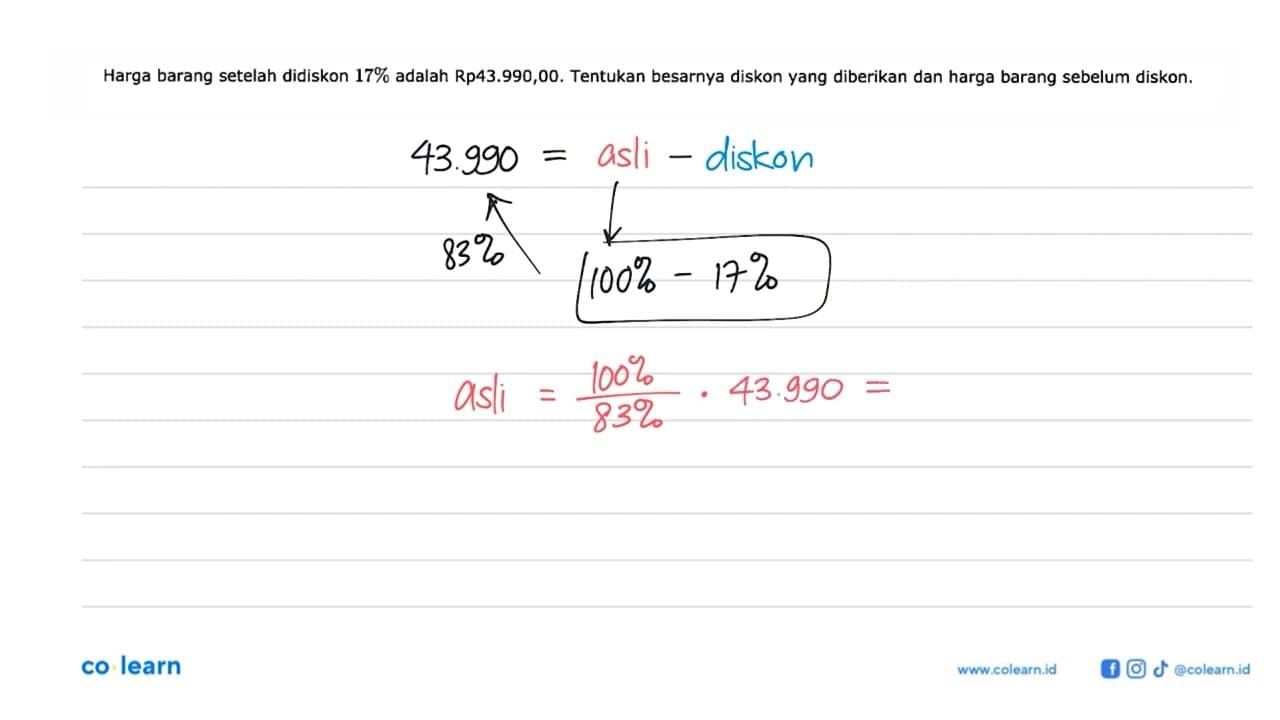 Harga barang setelah didiskon 17% adalah Rp43.990,00. Tentukan besarnya diskon yang diberikan dan harga barang sebelum diskon.
43.990 = asli - diskon
83%
100% - 17%
asli = 100%/83% . 43.990 =
co learn
www.colearn.id
@colearn.id